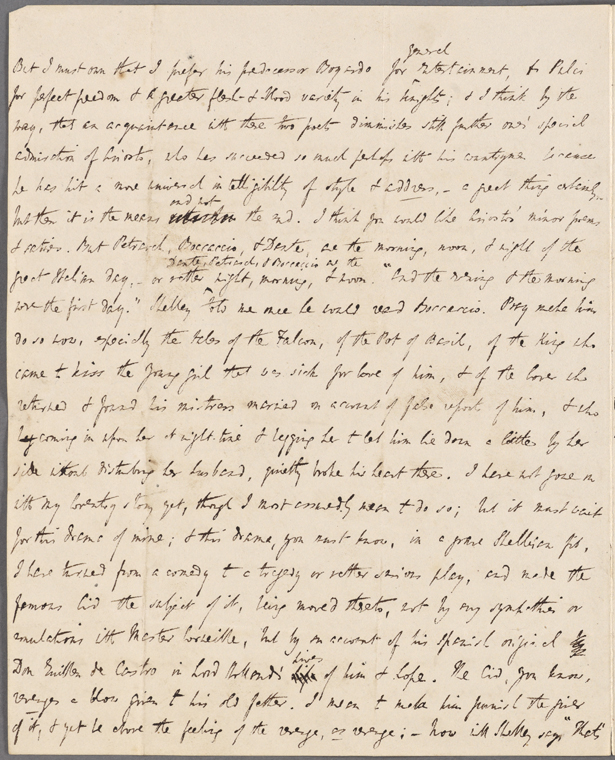 general
But I must own that I prefer his predecessor Boyardo for entertainment, & Pulci
for perfect freedom & a greater flesh & blood variety in his knights; & I think by the
way, that an acquaintance with these two poets diminishes still further one's special
admiration of Ariosto, who has succeeded so much perhaps with his countrymen because
he has hit a more universal intelligibility of style & address, – a great thing certainly,
and not
but then it is the means the end. I think you would like Ariosto's minor poems
& satires. But Petrarch, Boccaccio, & Dante, are the morning, noon, & night of the
Dante, Petrarch, & Boccaccio are the
great Italian day, – or rather night, morning, & noon. "And the evening & the morning
were the first day." Shelley told me once he would read Boccaccio. Pray make him
do so now, especially the tales of the Falcon, of the Pot of Basil, of the King who
came to kiss the young girl that was sick for love of him, & of the lover who
returned & found his mistress married on account of false report of him, & who
coming in upon her at night-time & begging her to let him lie down a little by her
side without disturbing her husband, quietly broke his heart there. I have not gone on
with my story yet, though I most assuredly mean to do so; but it must wait
for this drama of mine; & this drama, you must know, in a grave Shelleyan fit,
I have turned from a comedy to a tragedy or rather serious play, and made the
famous Cid the subject of it, being moved thereto, not by any sympathies or
emulations with Master Corneille, but by an account of his Spanish original
lives
Don Guillen de Castro in Lord Holland's of him & Lope. The Cid, you know,
revenges a blow given to his old father. I mean to make him punish the giver
of it, & yet be above the feeling of the revenge, as revenge; – Now will Shelley say "That's